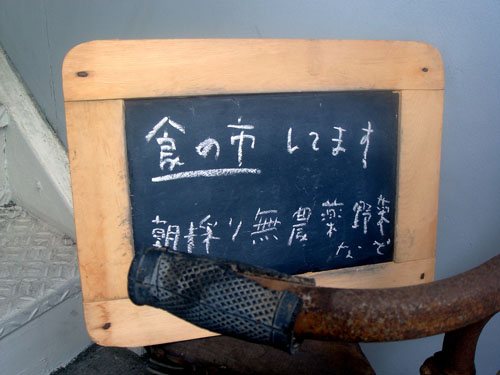 食の市 してます
朝採り無農薬野菜
など